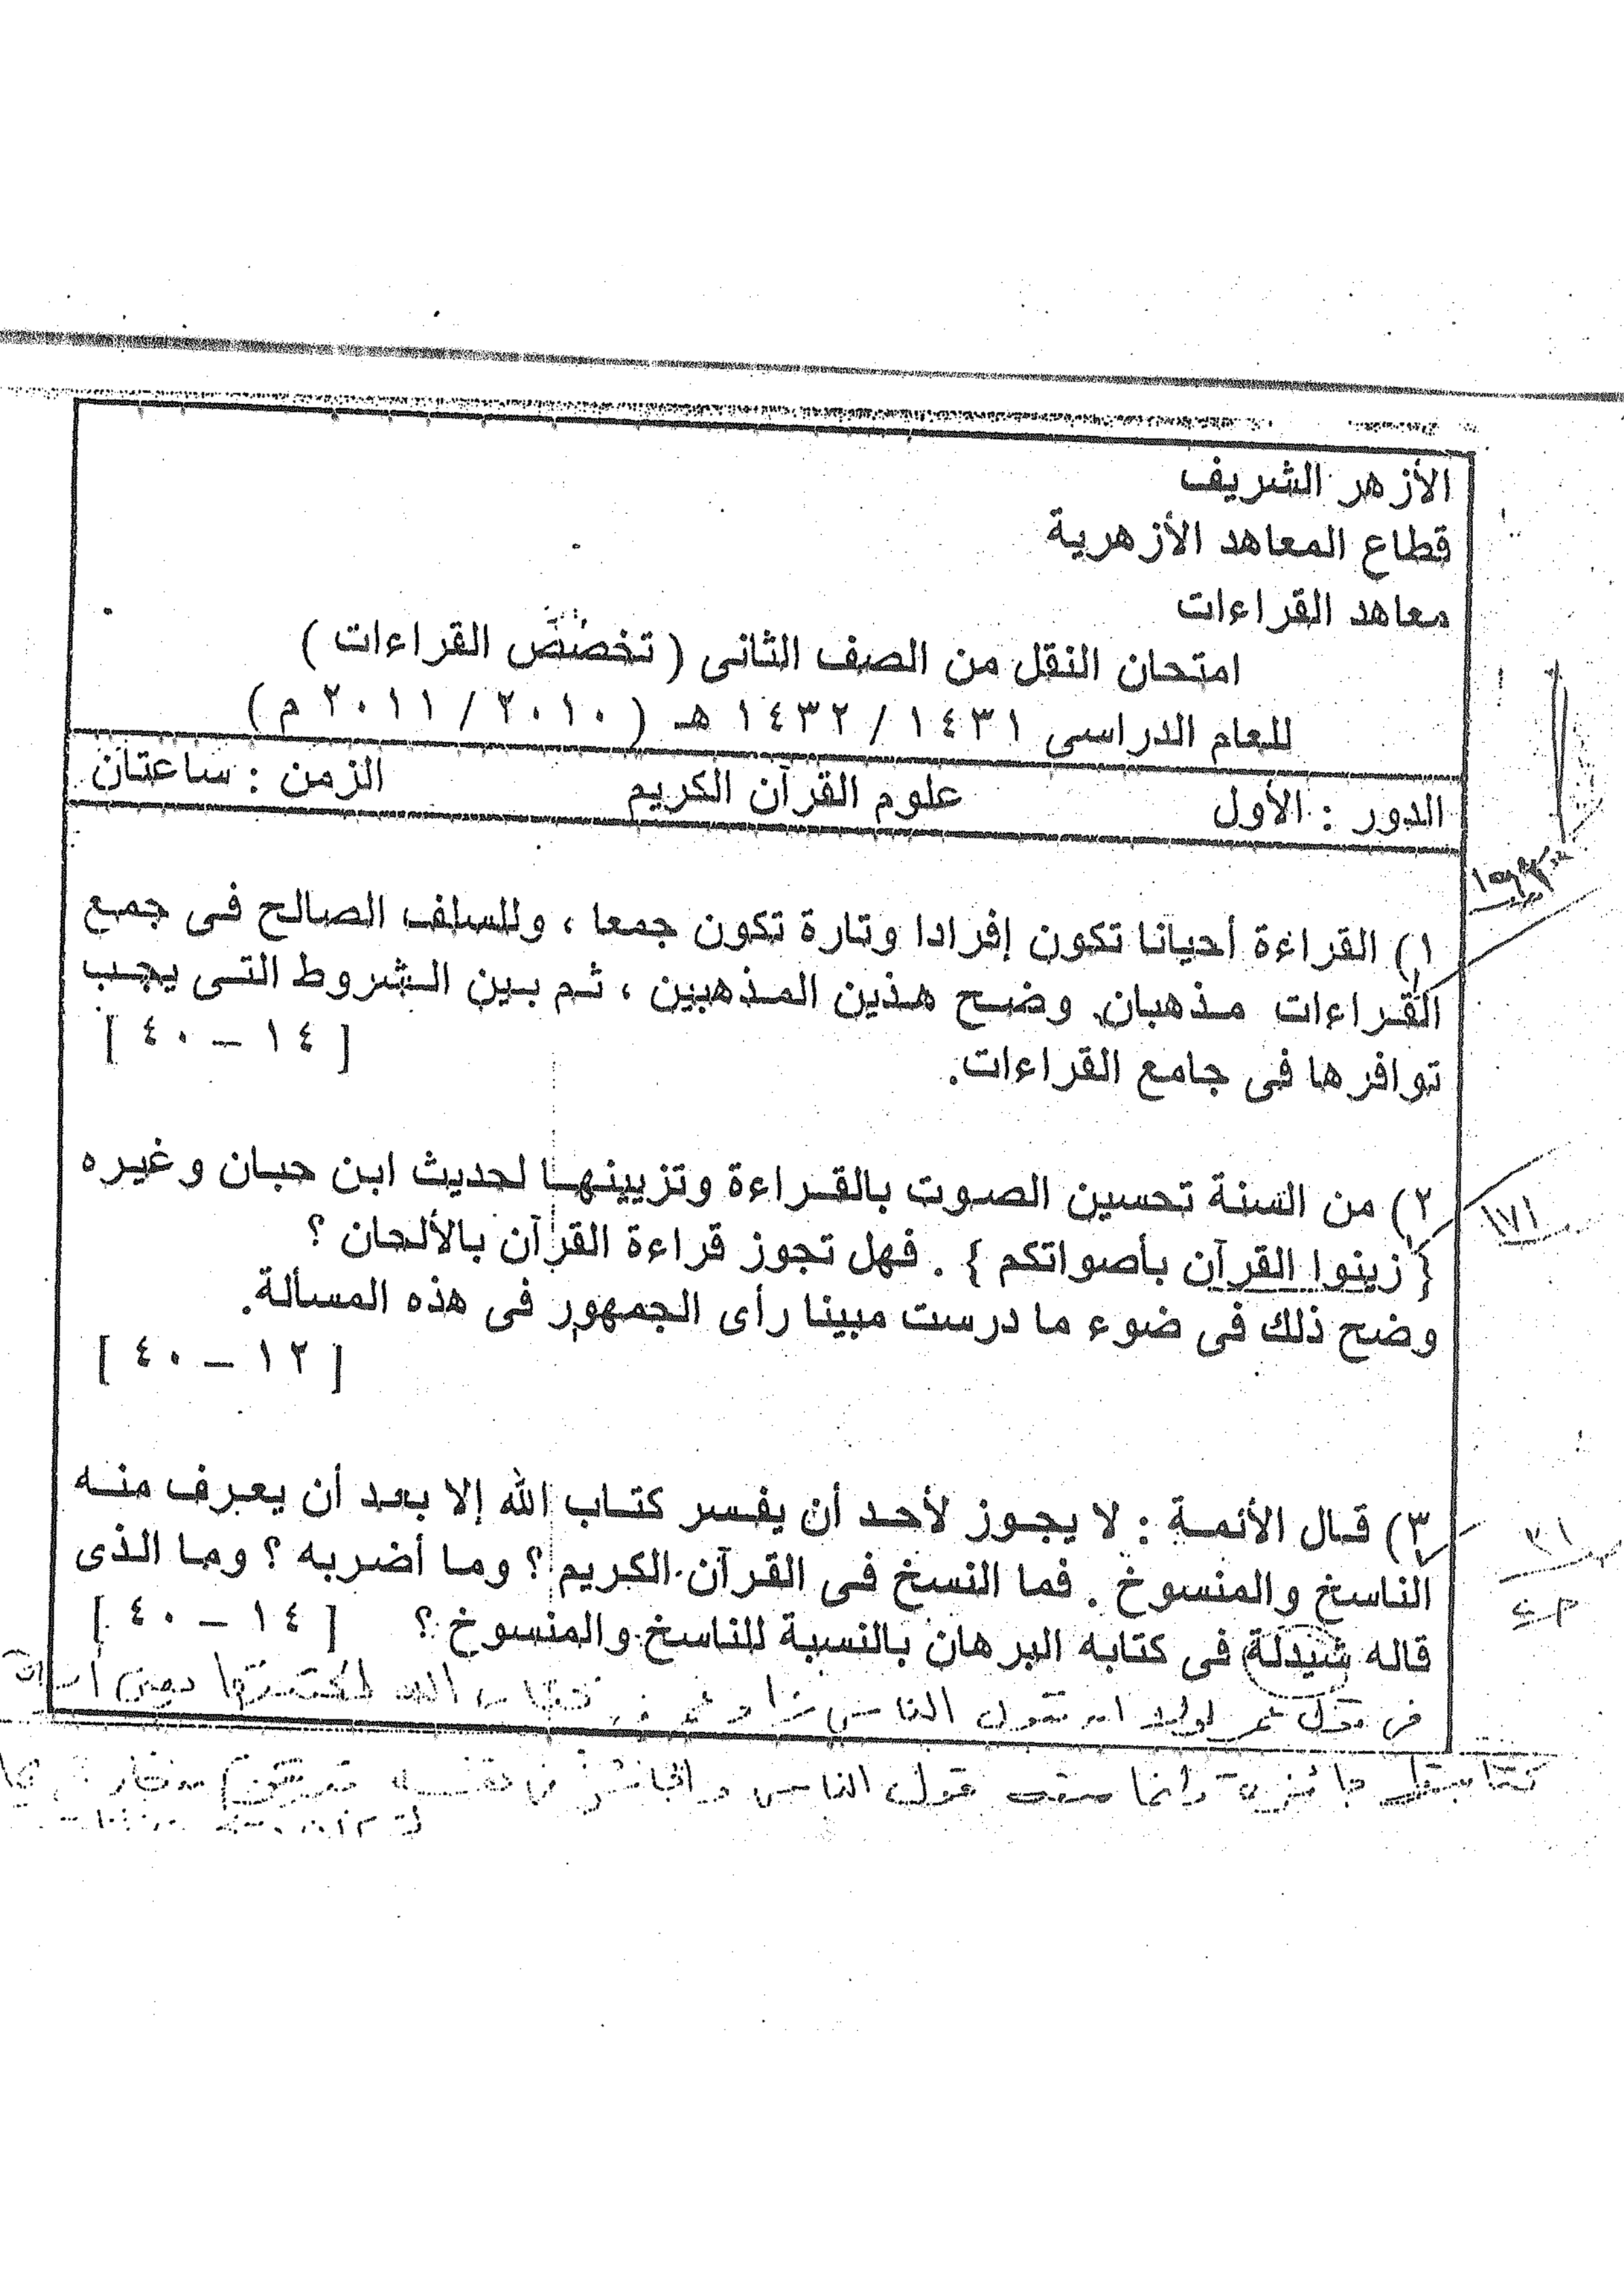 الأزهر الشريف
قطاع المعاهد الأزهرية
معاهد القراءات
امتحان النقل من الصف الثانى ( تخصص القراءات )
للعام الدراسى ١٤٣١ / ١٤٣٢ هـ ( ٢٠١٠ / ٢٠١١ م )
الدور : الأول علوم القرآن الكريم الزمن : ساعتان
١) القراءة أحيانا تكون إفرادا وتارة تكون جمعا ، وللسلف الصالح فى جمع
القراءات مذهبان. وضح هذين المذهبين ، ثم بين الشروط التى يجب
توافرها فى جامع القراءات. [ ١٤ – ٤٠ ]
٢) من السنة تحسين الصوت بالقراءة وتزيينها لحديث ابن حبان وغيره
{ زينوا القرآن بأصواتكم } . فهل تجوز قراءة القرآن بالألحان ؟
١٧١
وضح ذلك فى ضوء ما درست مبينا رأى الجمهور فى هذه المسألة.
[ ١٢ – ٤٠ ]
٣) قال الأئمة : لا يجوز لأحد أن يفسر كتاب الله إلا بعد أن يعرف منه
الناسخ والمنسوخ . فما النسخ فى القرآن الكريم ؟ وما أضربه ؟ وما الذى
قاله شيدلة فى كتابه البرهان بالنسبة للناسخ والمنسوخ ؟ [ ١٤ – ٤٠ ]
يقول الناس زاد عمر فى كتاب الله لكتبتها
قول الناس